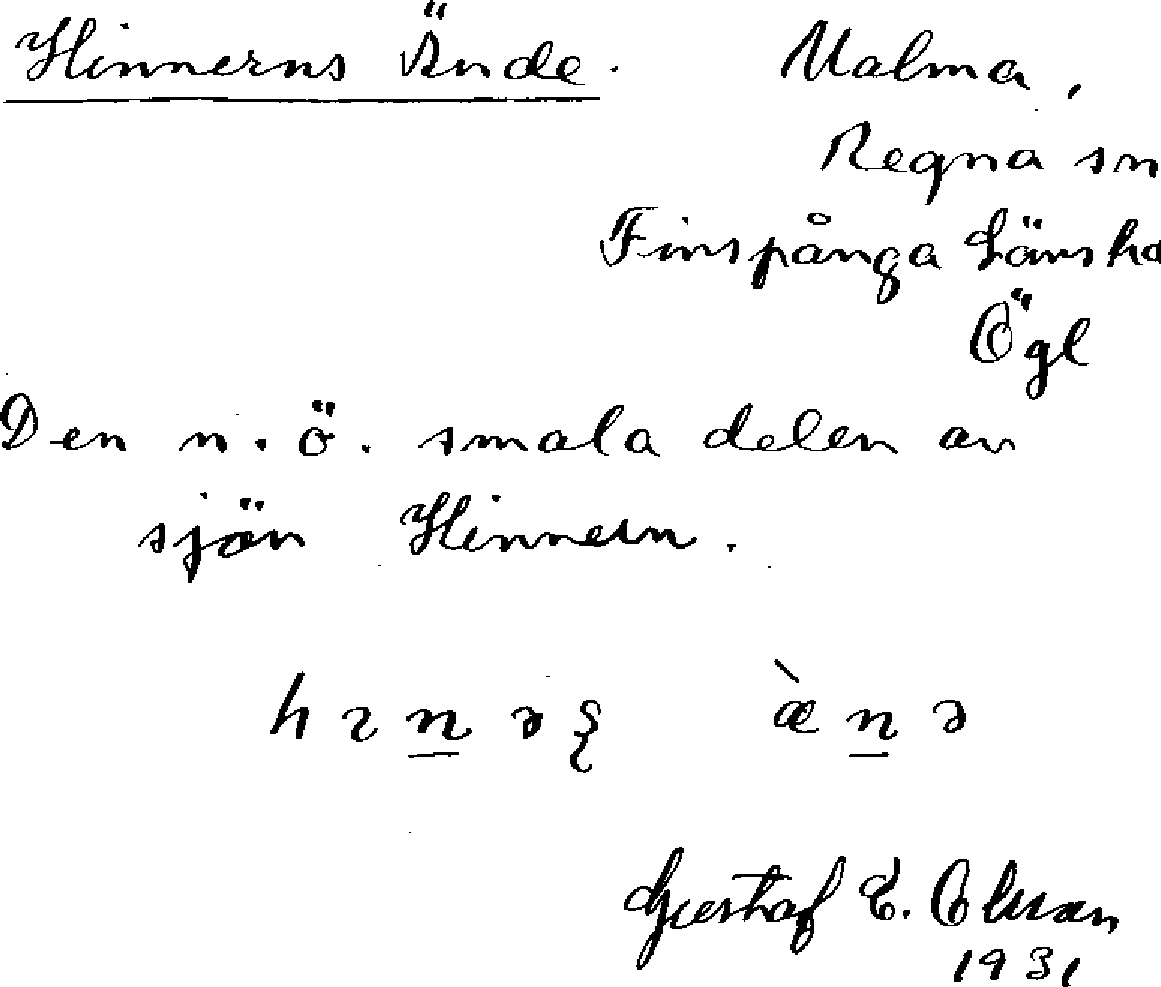 Hinnerns Ände. Malma,
Regna sn
Finspånga länshd
Ögl
Den n.ö. smala delen av
sjön Hinnern.
Gustaf E. Olsson
1931